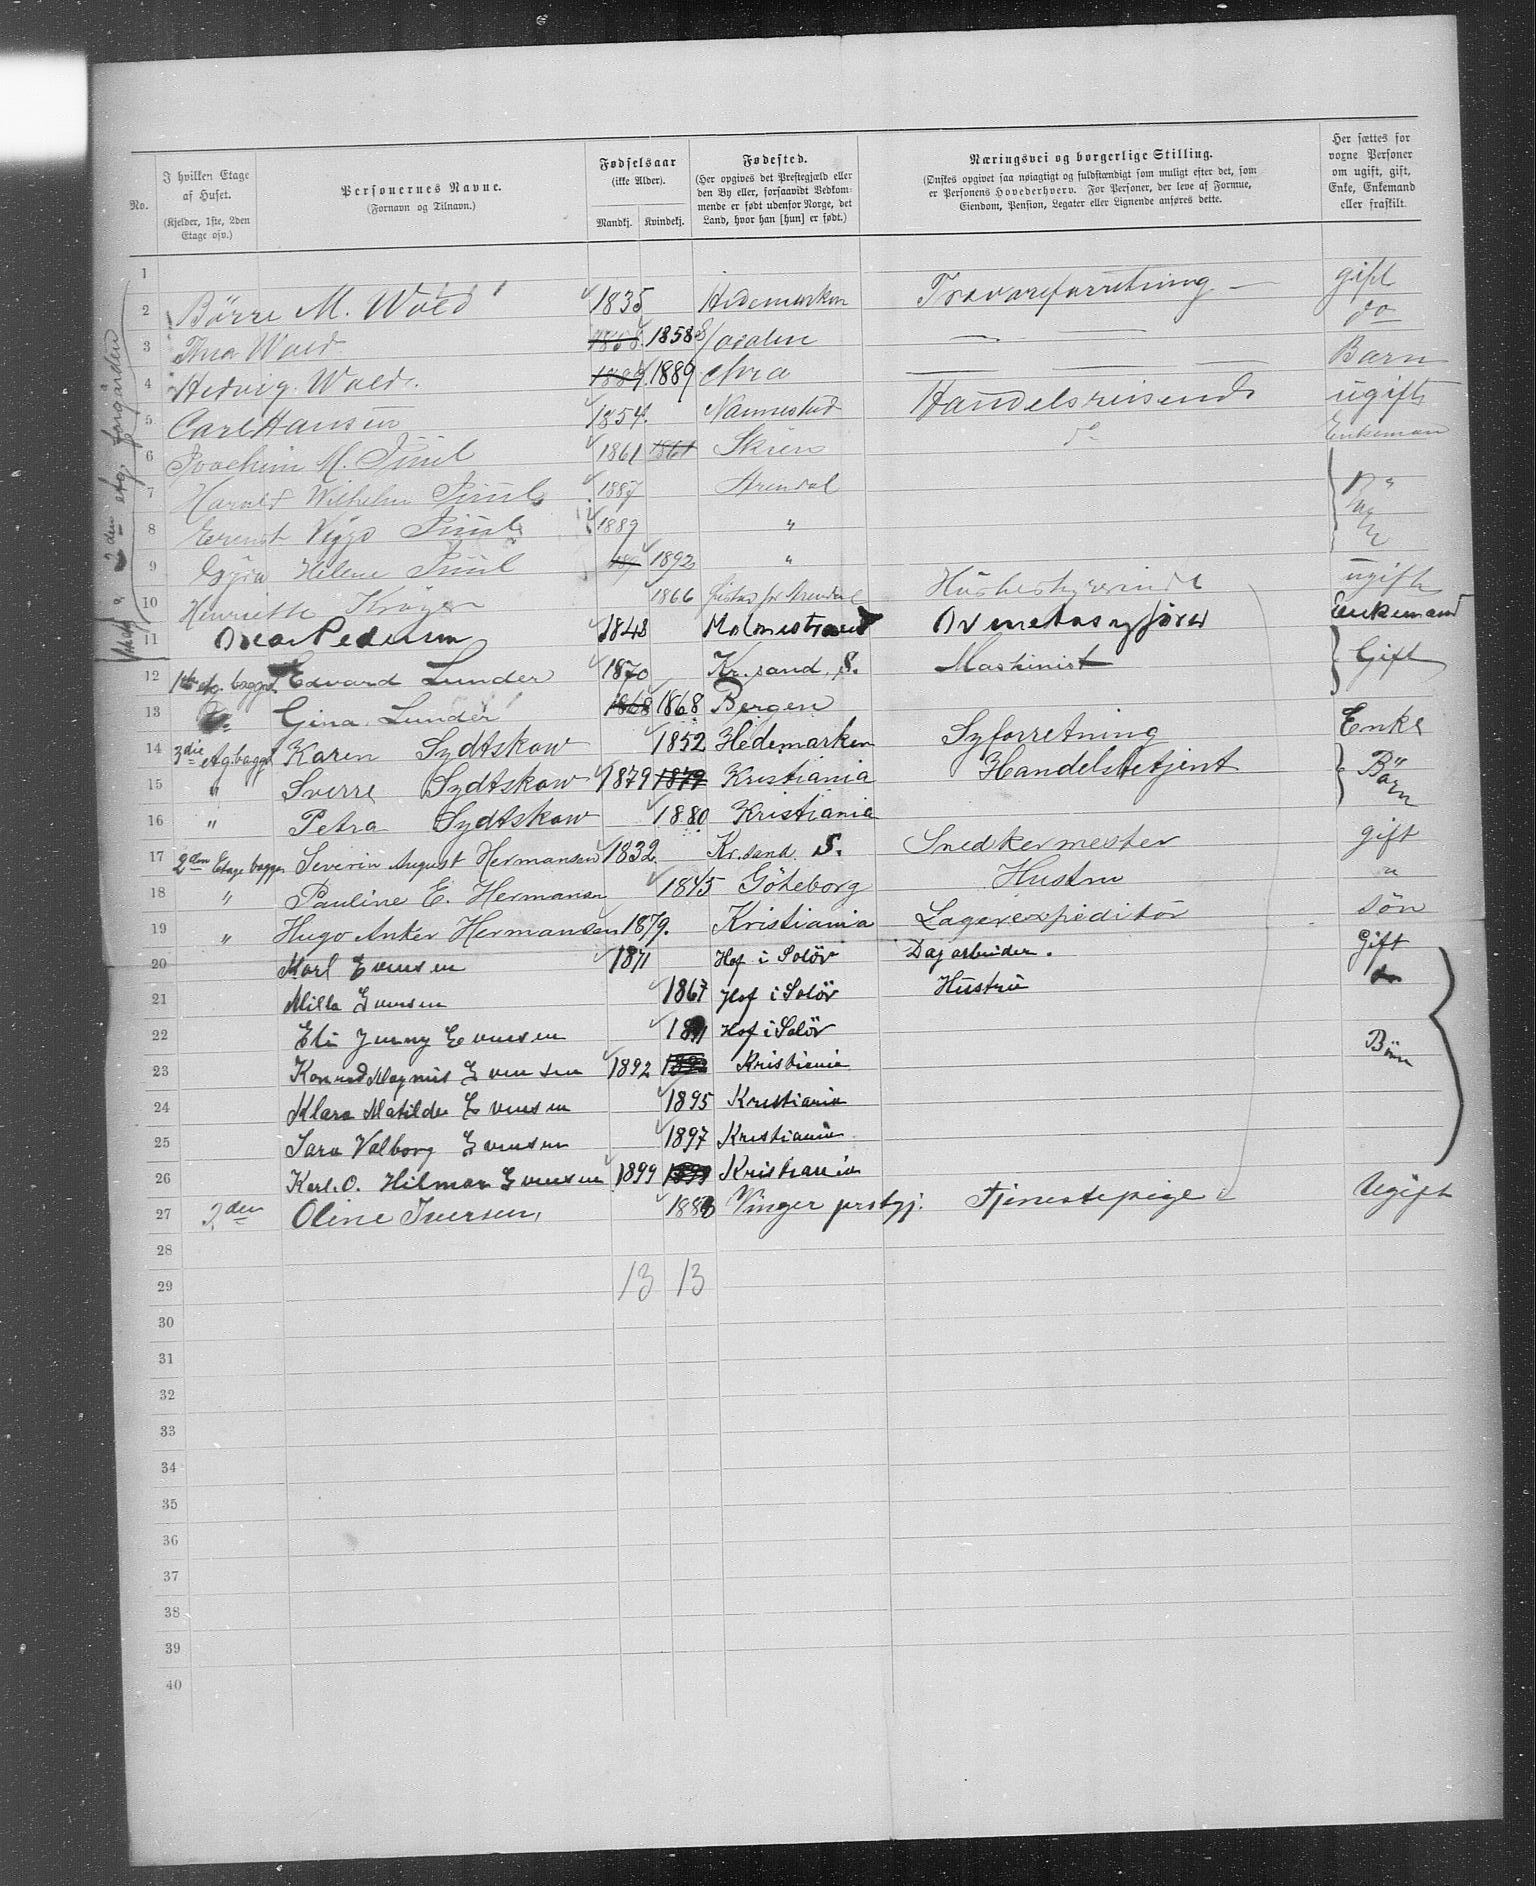 No. I hvilken Etage af Huset. (Kjelder, 1ste, 2den Etage osv.) Personernes Navne. (Fornavn og Tilnavn.) Fødselsaar (ikke Alder). Mandkj. Kvindekj. Fødested. (Her opgives det Prestegjæld eller den By eller, forsaavidt Vedkommende er født udenfor Norge, det Land, hvor han [hun] er født.) Næringsvei og borgerlige Stilling. (Ønskes opgivet saa nøiagtigt og fuldstændigt som muligt efter det, som er Personens Hovederhverv. For Personer, der leve af Formue, Eiendom, Pension, Legater eller Lignende anføres dette. Her sættes for voxne Personer om ugift, gift, Enke, Enkemand eller fraskilt.
2den Etg. forgården
1
2 Börre M. Wold 1835 Hedemarken Trævareforretning — gift
3 Thea Wold 1858 1858 — do
4 Hedvig Wold. 1889 1889 — Barn
5 Carl Hansen 1854 Nannestad Handelsreisende ugift
6 Joachim M. Juul 1861 1861 Skien do Enkeman
7 Harald Wilhelm Juul 1887 Arendal
8 Ernst Viggo Juul 1889 "
9 Helene Juul 1892 "
10 Henriette Krøyer 1866 Husbestyrerinde ugift
11 Oscar Pedersen 1848 Holmestrand Enkemand
12 1ste etg. baggd Edvard Lunder 1870 Kr.sand. S. Maskinist Gift
13 Do Gina Lunder 1868 1868 Bergen
14 3die etg. baggd Karen Sydtskow 1852 Hedemarken Syforretning Enke
15 " Sverre Sydtskow 1879 1879 Kristiania Handelsbetjent Börn
16 " Petra Sydtskow 1880 Kristiania
17 2den Etage baggr Severin August Hermansen 1832 Kr.sand S. Snedkermester gift
18 " Pauline E. Hermansen 1845 Göteborg Hustru "
19 " Hugo Anker Hermansen 1879. Kristiania Lagerexpeditör sön
20 Karl Evensen 1871 Hof i Solör Dagarbeider. Gift
21 Milla Evensen 1867 Hof i Solör Hustru do
22 Eli Jenny Evensen Hof i Solör
23 Konrad Magnus Evensen 1892 1892 Kristiania Börn
24 Klara Matilde Evensen 1895 Kristiania
25 Sara Valborg Evensen 1897 Kristiania
26 Karl. O. Hilmar Evensen 1899 1899 Kristiania
27 2den Oline Iversen, 1880 Vinger prstgj. Tjenestepige Ugift
28
29 13 13
30
31
32
33
34
35
36
37
38
39
40